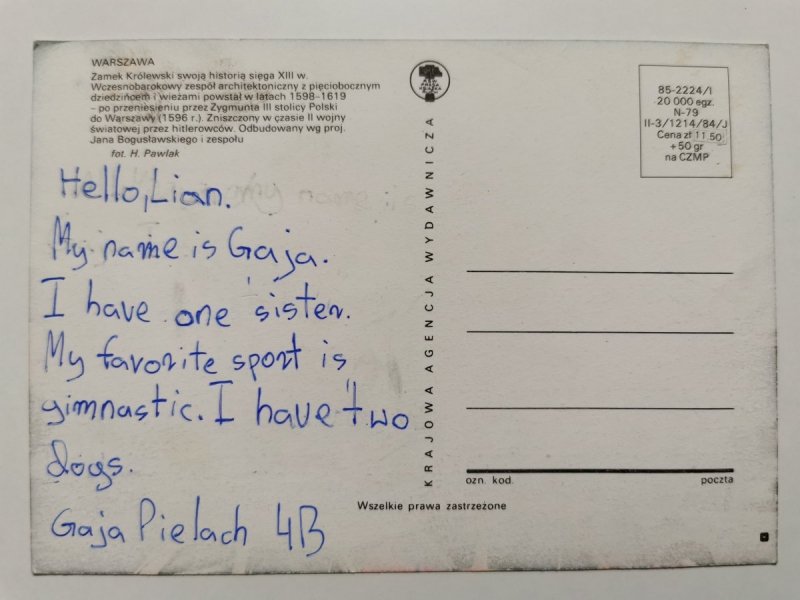 WARSZAWA
Zamek Królewski swoją historią sięga XIII w.
Wczesnobarokowy zespół architektoniczny z pięciobocznym
dziedzińcem i wieżami powstał w latach 1598–1619
– po przeniesieniu przez Zygmunta III stolicy Polski
do Warszawy (1596 r.). Zniszczony w czasie II wojny
światowej przez hitlerowców. Odbudowany wg proj.
Jana Bogusławskiego i zespołu
fot. H. Pawlak
Hello, Lian.
My name is Gaja.
I have one sister.
My favorite sport is
gimnastic. I have two
dogs.
Gaja Pielach 4B
KRAJOWA AGENCJA WYDAWNICZA
85-2224/I
20 000 egz.
N-79
II-3/1214/84/J
Cena zł 11.50
+50 gr
na CZMP
ozn. kod. poczta
Wszelkie prawa zastrzeżone